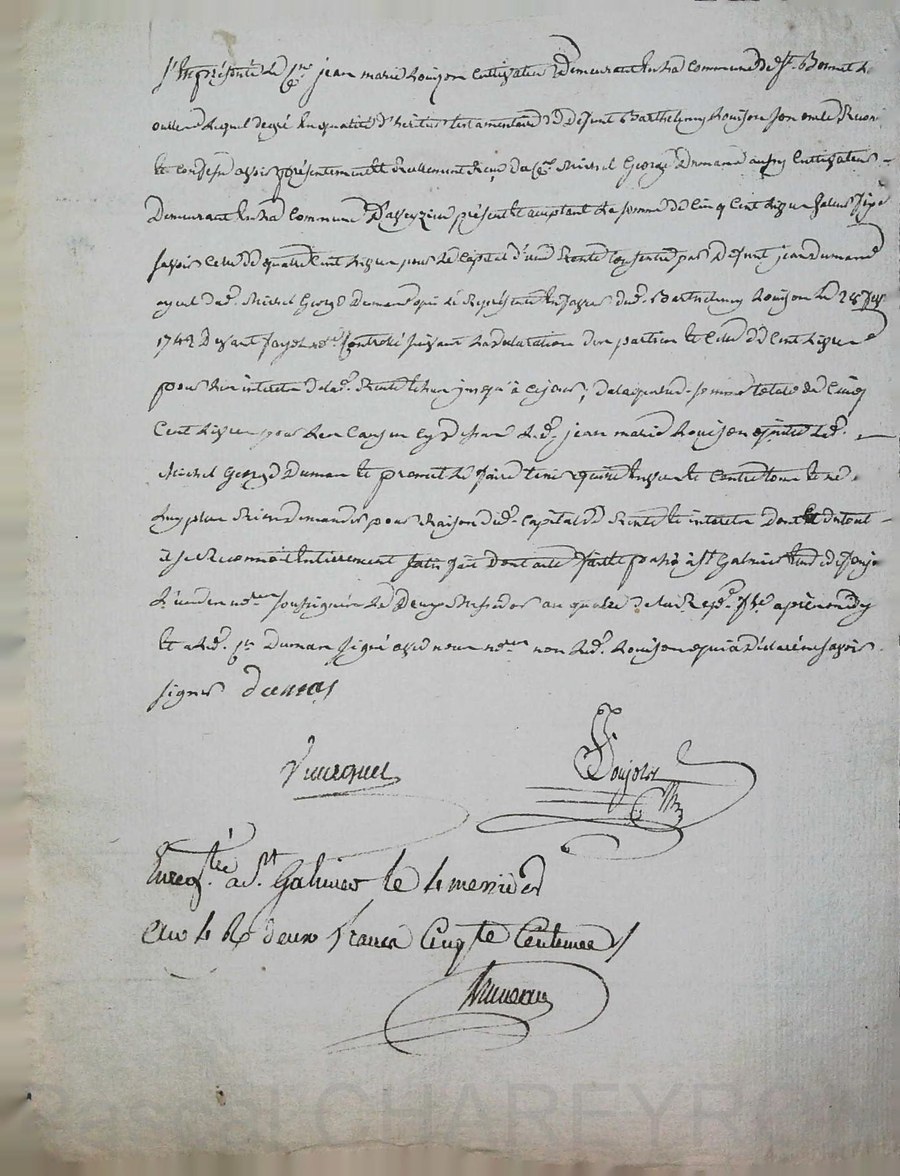 S'est présenté le Cen jean marie Rouijon Cultivateur Demeurant En la Commune de St. Bonnet Le
oullere Lequel de gré En qualité d'heritier testamentaire de Defunt Barthelemy Rouijon son oncle Reconn
et Confesse avoir présentement et Reellement Reçu du Cen Michel George Dumand aussy Cultivateur
Demeurant En la Commune D'aveyzieu présent et aceptant La somme de Cinq Cent Livres
savoir Celle de quatre Cent Livres pour Le Capital d'une Rente Constituée par Defunt jean Dumand
ayeul dud. Michel George Dumand qui Le Represente En faveur dud. Barthelemy Rouijon Le
1742 Devant not. Controlé suivant La declaration des parties et Celle de Cent Livres
pour les interets de lad. Rente jusqu'à Ce jour, de laquelle somme totale de Cinq
Cent Livres pour Les Causes Cy dessus Led. jean marie Rouijon quitte Led.
Michel George Dumand et promet Le faire tenir quitte Envers et Contre tous et ne
Luy plus Rien demander pour Raison dud. Capital de Rente et interets Dont et du tout
il se Reconnoit Entierement satisfait Dont acte fait et passé à St Galmier Etude
L'un des nores soussignés Le Deux Messidor an quatre de la Rep. fse après midy
et a Led. Cen Dumand signé avec nous nores non Led. Rouijon qui a Déclaré ne savoir
signer dumas

Enregtré a St. Galmier le 4 messidor
an 4 R deux francs Cinqte Centimes
Pascal CHAREYRON